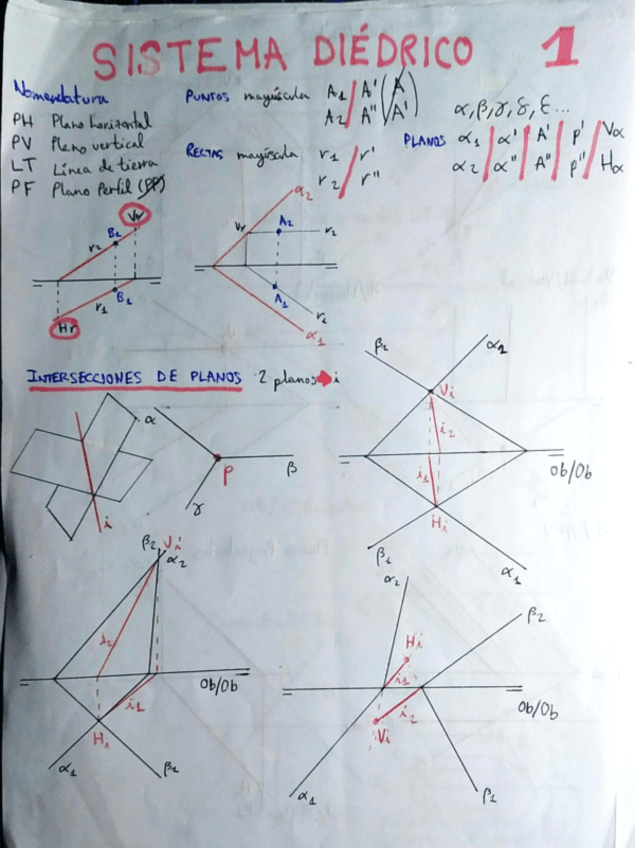 SISTEMA DIÉDRICO 1
Nomenclatura
PH Plano horizontal
PV Plano vertical
LT Línea de tierra
PF Plano Perfil (PP)
PUNTOS mayúscula A1 / A' (A
A2 / A'' A')
RECTAS mayúscula r1 / r'
r2 / r''
α, β, γ, δ, ε...
PLANOS α1 / α' / A' / p' / Vα
α2 / α'' / A'' / p'' / Hα
Vr
B2
r2
B1
r1
Hr
α2
Vr A2 r2
A1
r1
α1
INTERSECCIONES DE PLANOS 2 planos → i
α
i
P
β
γ
β2 α2
Vi
i2
i1
Ob/Ob
Hi
β1 α1
β2 Vi
α2
i2
Ob/Ob
i1
α1
α2
β2
Hi
i1
i2
Ob/Ob
Vi
α1 β1